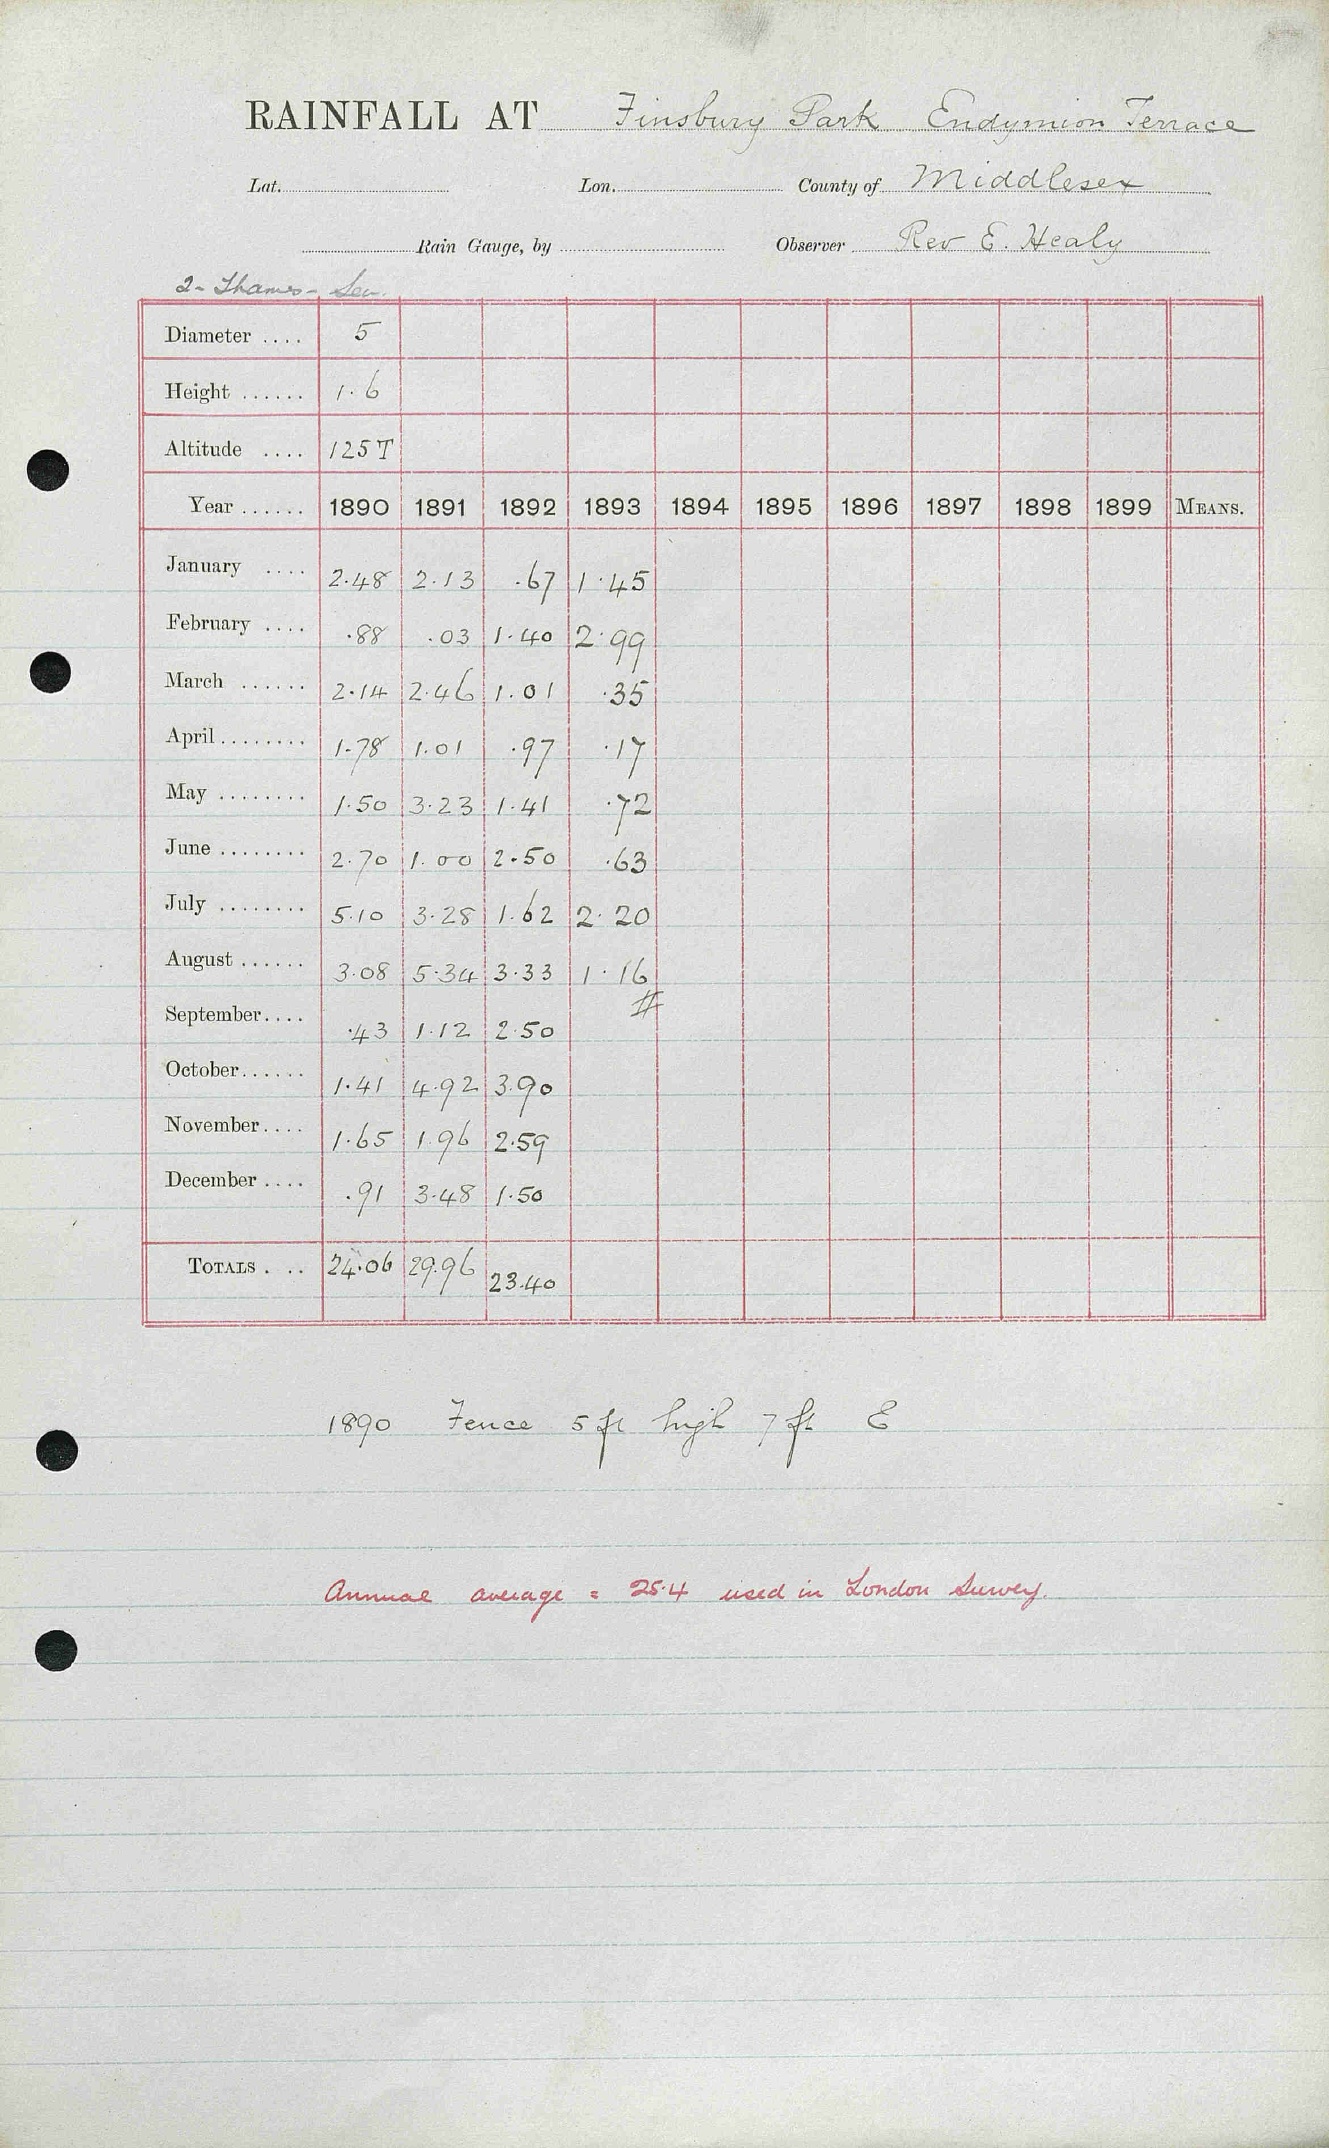 RAINFALL AT Finsbury Park Endymion Terrace
Lat. Lon. County of Middlesex
Rain Gauge, by Observer Rev E. Healy
2- Thames-
Diameter .... 5
Height ...... 1.6
Altitude .... 125T
Year ...... 1890 1891 1892 1893 1894 1895 1896 1897 1898 1899 MEANS.
January .... 2.48 2.13 .67 1.45
February .... .88 .03 1.40 2.99
March ...... 2.14 2.46 1.01 .35
April ........ 1.78 1.01 .97 .17
May ........ 1.50 3.23 1.41 .72
June ........ 2.70 1.00 2.50 .63
July ........ 5.10 3.28 1.62 2.20
August ...... 3.08 5.34 3.33 1.16
#
September.... .43 1.12 2.50
October...... 1.41 4.92 3.90
November.... 1.65 1.96 2.59
December .... .91 3.48 1.50
TOTALS . .. 24.06 29.96 23.40
1890 Fence 5 ft high 7 ft E
Annual average = 25.4 used in London Survey.